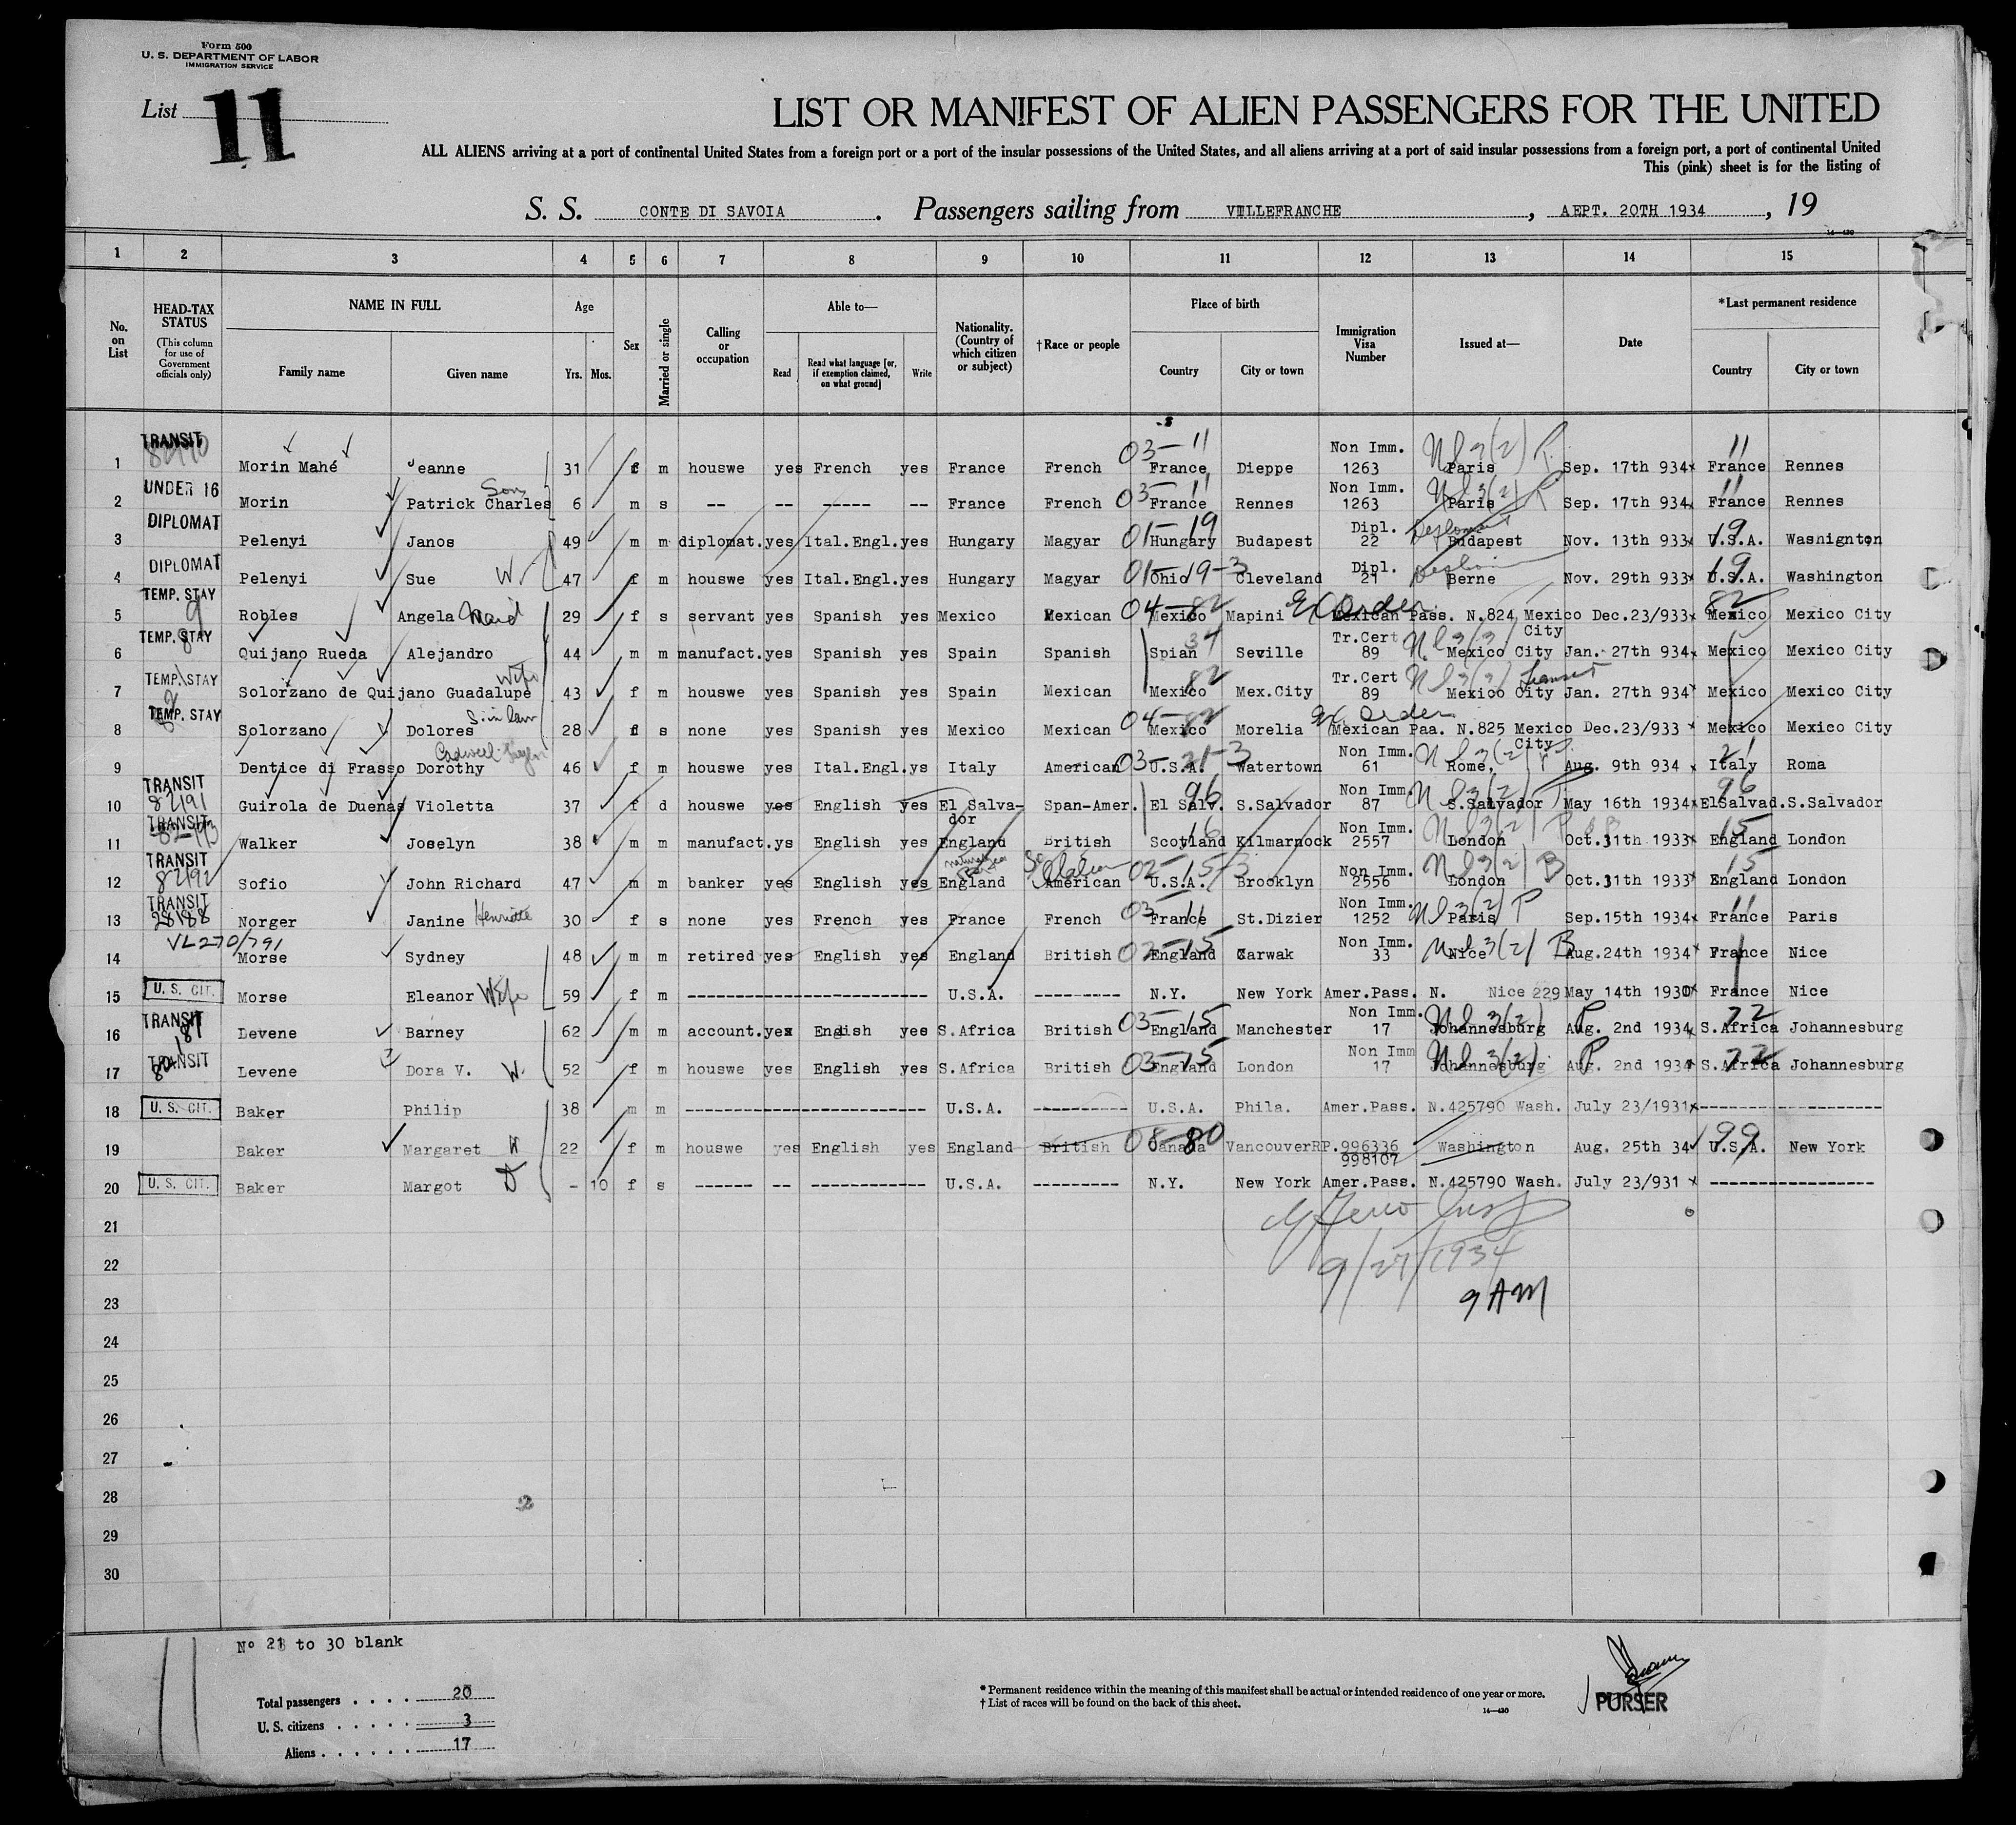 Form 500
U. S. DEPARTMENT OF LABOR
IMMIGRATION SERVICE
List 11
LIST OR MANIFEST OF ALIEN PASSENGERS FOR THE UNITED
ALL ALIENS arriving at a port of continental United States from a foreign port or a port of the insular possessions of the United States, and all aliens arriving at a port of said insular possessions from a foreign port, a port of continental United
This (pink) sheet is for the listing of
S. S. CONTE DI SAVOIA. Passengers sailing from VILLEFRANCHE, AEPT. 20TH 1934, 19
14—430
1 2 3 4 5 6 7 8 9 10 11 12 13 14 15
No. on List HEAD-TAX STATUS (This column for use of Government officials only) NAME IN FULL Family name Given name Age Yrs. Mos. Sex Married or single Calling or occupation Able to— Read Read what language [or, if exemption claimed, on what ground] Write Nationality. (Country of which citizen or subject) †Race or people Place of birth Country City or town Immigration Visa Number Issued at— Date *Last permanent residence Country City or town
1 TRANSIT Morin Mahé Jeanne 31 f m houswe yes French yes France French 03-11 France Dieppe Non Imm. 1263 Paris Sep. 17th 934 11 France Rennes
2 UNDER 16 Morin Patrick Charles Son 6 m s -- -- ----- -- France French 03-11 France Rennes Non Imm. 1263 Paris Sep. 17th 934 11 France Rennes
3 DIPLOMAT Pelenyi Janos 49 m m diplomat. yes Ital.Engl. yes Hungary Magyar 01-19 Hungary Budapest Dipl. 22 Diplomat Budapest Nov. 13th 933 19 U.S.A. Wasnignton
4 DIPLOMAT Pelenyi Sue W. 47 f m houswe yes Ital.Engl. yes Hungary Magyar 01-19-3 Ohio Cleveland Dipl. 21 Berne Nov. 29th 933 19 U.S.A. Washington
5 TEMP. STAY 9 Robles Angela Maid 29 f s servant yes Spanish yes Mexico Mexican 04-82 Mexico Mapini Ex Order Mexican Pass. N.824 Mexico City Dec.23/933 82 Mexico Mexico City
6 TEMP. STAY 8 Quijano Rueda Alejandro 44 m m manufact. yes Spanish yes Spain Spanish 34 Spian Seville Tr.Cert 89 Mexico City Jan. 27th 934 Mexico Mexico City
7 TEMP. STAY Solorzano de Quijano Guadalupe Wife 43 f m houswe yes Spanish yes Spain Mexican 82 Mexico Mex.City Tr.Cert 89 Mexico City Transit Jan. 27th 934 Mexico Mexico City
8 TEMP. STAY Solorzano Dolores S.in law 28 f s none yes Spanish yes Mexico Mexican 04-82 Mexico Morelia Ex. Order Mexican Paa. N.825 Mexico City Dec.23/933 Mexico Mexico City
9 Dentice di Frasso Dorothy 46 f m houswe yes Ital.Engl. ys Italy American 03-21-3 U.S.A. Watertown Non Imm. 61 Rome, Aug. 9th 934 21 Italy Roma
10 TRANSIT 82191 Guirola de Duenas Violetta 37 f d houswe yes English yes El Salva-dor Span-Amer. 96 El Salv. S.Salvador Non Imm. 87 S.Salvador May 16th 1934 96 ElSalvad. S.Salvador
11 TRANSIT Walker Joselyn 38 m m manufact. ys English yes England British 16 Scotland Kilmarnock Non Imm. 2557 London Oct.31th 1933 15 England London
12 TRANSIT 82192 Sofio John Richard 47 m m banker yes English yes England American 02-15-3 U.S.A. Brooklyn Non Imm. 2556 London Oct.31th 1933 15 England London
13 TRANSIT 28188 Norger Janine Henriette 30 f s none yes French yes France French 03-11 France St.Dizier Non Imm. 1252 Paris Sep.15th 1934 11 France Paris
14 VL270/791 Morse Sydney 48 m m retired yes English yes England British 02-15 England Carwak Non Imm. 33 Nice Aug.24th 1934 France Nice
15 U. S. CIT. Morse Eleanor Wife 59 f m ------------------------ U.S.A. --------- N.Y. New York Amer.Pass. N. Nice 229 May 14th 1930 France Nice
16 TRANSIT Levene Barney 62 m m account. yes English yes S.Africa British 03-15 England Manchester Non Imm. 17 Johannesburg Aug. 2nd 1934 72 S.Africa Johannesburg
17 TRANSIT Levene Dora V. W. 52 f m houswe yes English yes S.Africa British 03-15 England London Non Imm 17 Johannesburg Aug. 2nd 1934 72 S.Africa Johannesburg
18 U. S. CIT. Baker Philip 38 m m ------------------------ U.S.A. ---------- U.S.A. Phila. Amer.Pass. N.425790 Wash. July 23/1931 ------------------
19 Baker Margaret W 22 f m houswe yes English yes England British 08-80 Canada Vancouver RP.996336 998107 Washington Aug. 25th 34 99 U.S.A. New York
20 U. S. CIT. Baker Margot D - 10 f s ------ -- ------------ U.S.A. --------- N.Y. New York Amer.Pass. N.425790 Wash. July 23/931 -----------------
21
22 9/27/1934
23 9 AM
24
25
26
27
28
29
30
No 21 to 30 blank
Total passengers . . . . 20
U. S. citizens . . . . . 3
Aliens . . . . . . 17
* Permanent residence within the meaning of this manifest shall be actual or intended residence of one year or more.
† List of races will be found on the back of this sheet.
14—430
PURSER